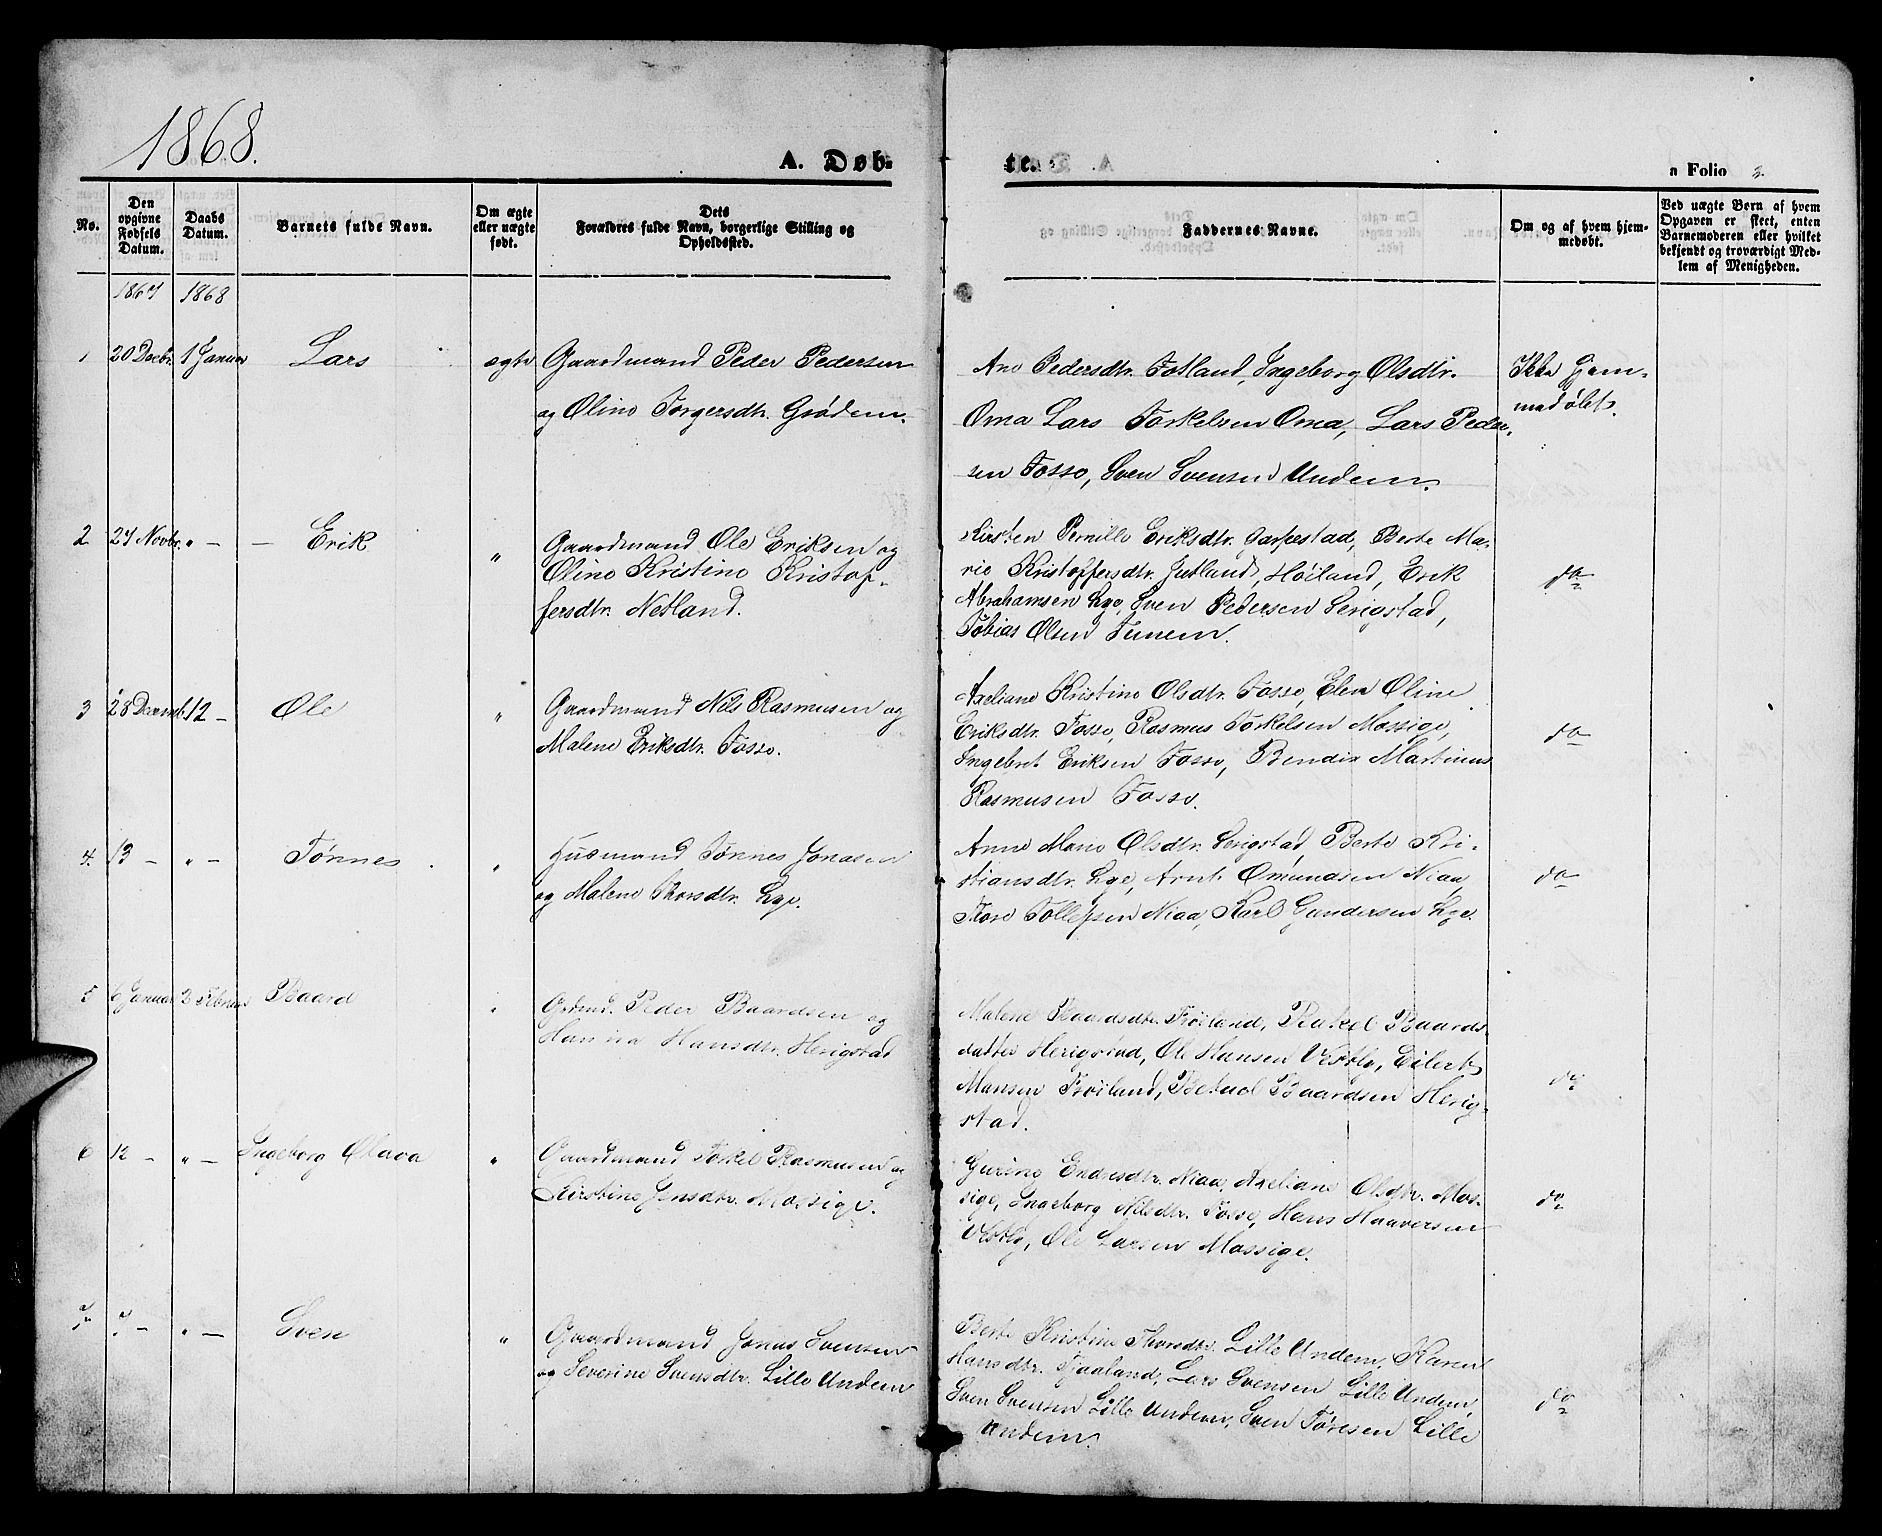 1868.
A. Døb-
te.
n Folio 2.
No.
Den opgivne Fødsels Datum.
Daabs Datum.
Barnets fulde Navn.
Om ægte eller uægte født.
Dets Forældres fulde Navn, borgerlige Stilling og Opholdssted.
Faddernes Navne.
Om og af hvem hjemmedøbt.
Ved uægte Børn af hvem Opgaven er skeet, enten Barnemoderen eller hvilket bekjendt og troværdigt Medlem af Menigheden.
1867 1868
1 20 Decbr. 1 Januar Lars ægte Gaardmand Peder Pedersen
og Oline Torgersdtr. Grødem.
Ane Pedersdtr. Fotland, Ingeborg Olsdtr.
Oma Lars Torkelsen Oma, Lars Peder-
sen Fosse, Sven Svensen Undem.
Ikke hjem-
medøbt.
2 27 Novbr. " — — Erik " Gaardmand Ole Eriksen og
Oline Kristine Kristof-
fersdtr. Netland.
Kirsten Pernille Eriksdtr. Garpestad, Berte Ma-
rie Kristoffersdtr. Jutland, Høiland, Erik
Abrahamsen Lye, Sven Pedersen Serigstad,
Tobias Olsen Tunem.
do
3 28 Decemb. 12 — Ole " Gaardmand Nils Rasmusen og
Malene Eriksdtr. Fosse.
Axeliane Kristine Olsdtr. Fosse, Elen Oline
Eriksdtr. Fosse, Rasmus Torkelsen Mossige,
Ingebret Eriksen Fosse, Bendix Martinus
Rasmusen Fosse.
do
4. 13 — " — Tønnes " Husmand Tønnes Jonasen
og Malene Thorsdtr. Lye.
Anne Marie Olsdtr. Serigstad, Berte Kri-
stiansdtr. Lye, Arnt Omundsen Niaa,
Tore Tollefsen Niaa, Karl Gundersen Lye.
do
5 6 Januar 2 Februar Baard " Grdmd. Peder Baardsen og
Hanna Hansdtr. Herigstad
Malene Baardsdtr. Frøiland, Rakel Baards-
datter Herigstad, Ole Hansen Vestly, Eilert
Mansen Frøiland, Betuel Baardsen Herig-
stad.
do
6 12 — " — Ingeborg Olava " Gaardmand Torkel Rasmusen og
Kirstine Jensdtr. Mossige.
Gurine Endresdtr. Niaa, Axeliane Olsdtr. Mos-
sige, Ingeborg Nilsdtr. Fosse, Hans Haaversen
Vestly, Ole Larsen Mossige.
do
7 7 — " — Sven " Gaardmand Jonas Svensen
og Severine Svensdtr. Lille Undem
Berte Kristine Thorsdtr. Lille Undem, Karen
Hansdtr. Tjaaland, Lars Svensen Lille Undem,
Sven Svensen Lille Undem, Sven Tøresen Lille
Undem.
do